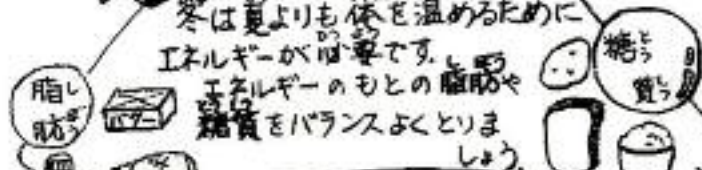 冬は夏よりも体を温めるために
エネルギーが必要です。
エネルギーのもとの脂肪や
糖質をバランスよくとりま
しょう。
脂肪
しぼう
バター
糖質
とうしつ